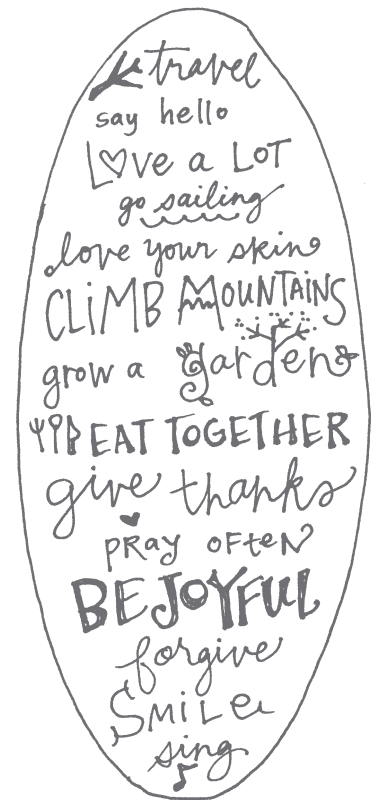 travel
say hello
Love a LOT
go sailing
love your skin
CLiMB MOUNTAiNS
grow a garden
EAT TOGETHER
give thanks
PRAY OFteN
BE JOYFUL
forgive
SMiLe
sing